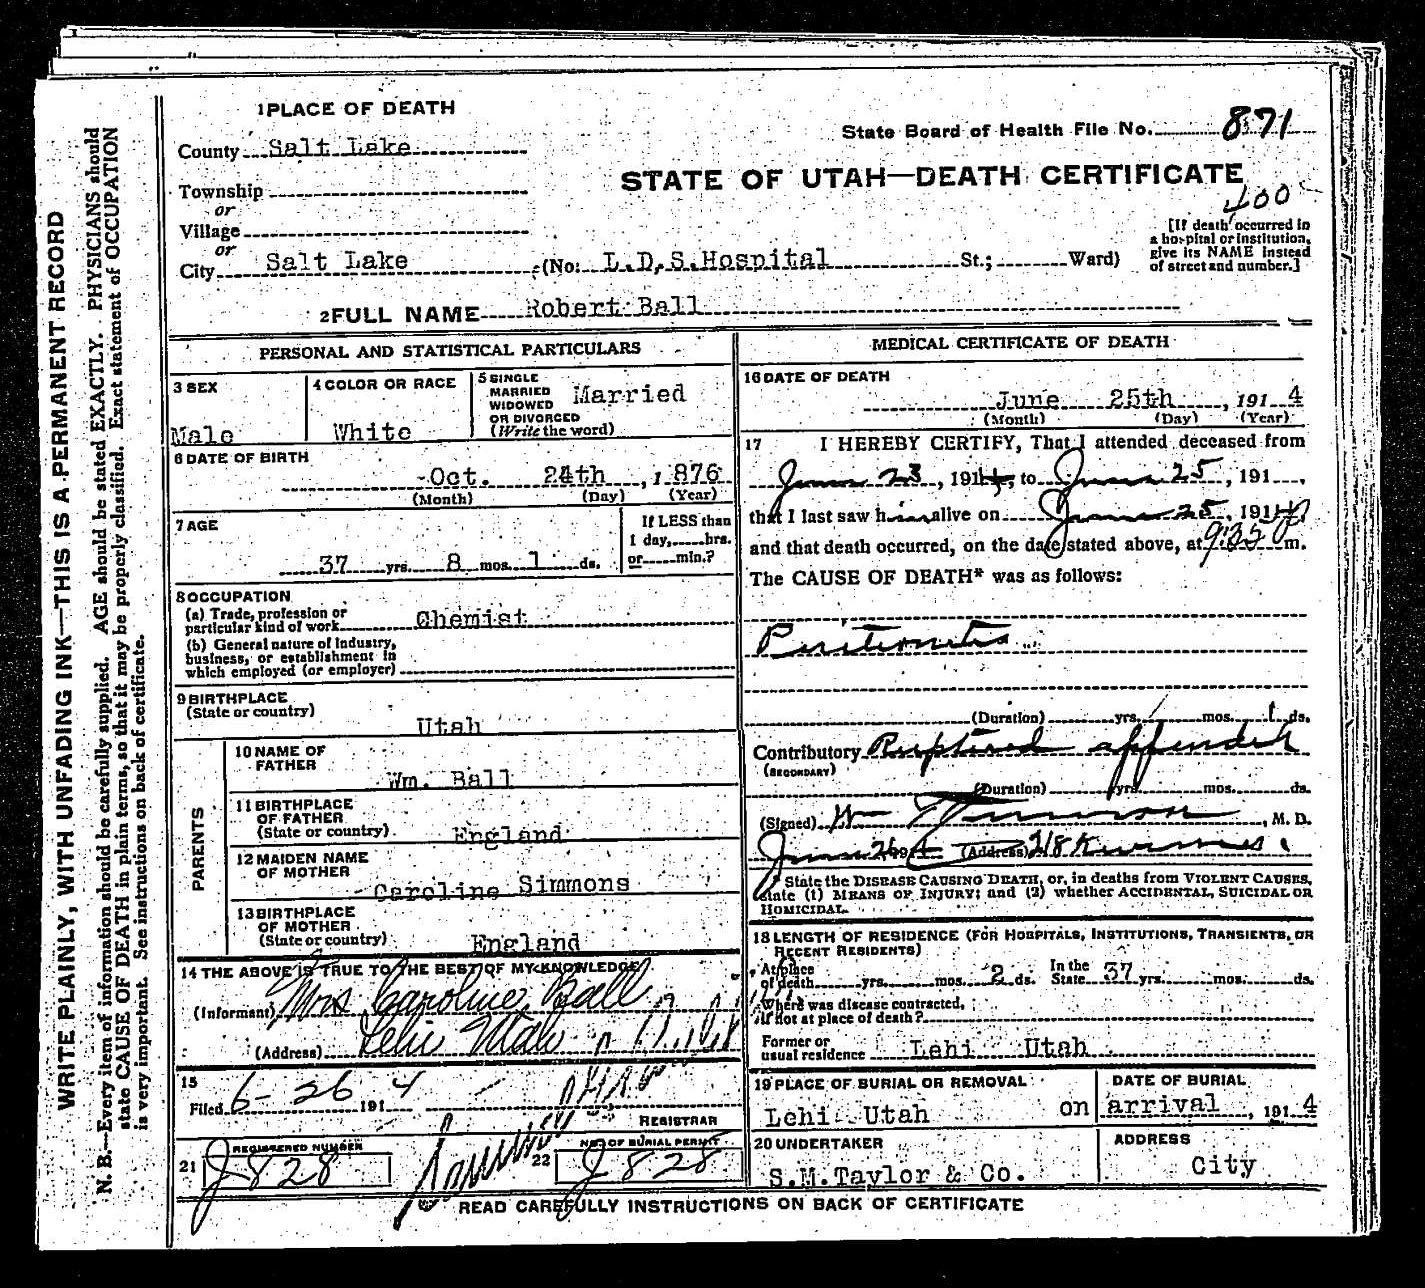 1 PLACE OF DEATH
County Salt Lake
Township
or
Village
or
City Salt Lake (No. L.D.S. Hospital St.; Ward)
State Board of Health File No. 871
STATE OF UTAH—DEATH CERTIFICATE
400
[If death occurred in
a hospital or institution,
give its NAME instead
of street and number.]
2 FULL NAME Robert Ball
PERSONAL AND STATISTICAL PARTICULARS
3 SEX
Male
4 COLOR OR RACE
White
5 SINGLE
MARRIED
WIDOWED
OR DIVORCED
(Write the word)
Married
6 DATE OF BIRTH
Oct. 24th, 1876
(Month) (Day) (Year)
7 AGE
37 yrs. 8 mos. 1 ds.
If LESS than
1 day, hrs.
or min.?
8 OCCUPATION
(a) Trade, profession or
particular kind of work Chemist
(b) General nature of industry,
business, or establishment in
which employed (or employer)
9 BIRTHPLACE
(State or country)
Utah
PARENTS
10 NAME OF
FATHER
Wm. Ball
11 BIRTHPLACE
OF FATHER
(State or country)
England
12 MAIDEN NAME
OF MOTHER
Caroline Simmons
13 BIRTHPLACE
OF MOTHER
(State or country)
England
14 THE ABOVE IS TRUE TO THE BEST OF MY KNOWLEDGE
(Informant) Mrs Caroline Ball
(Address) Lehi Utah
15
Filed 6-26 1914
REGISTRAR
21 REGISTERED NUMBER
J 828
22 NO. OF BURIAL PERMIT
J 828
MEDICAL CERTIFICATE OF DEATH
16 DATE OF DEATH
June 25th, 1914
(Month) (Day) (Year)
17 I HEREBY CERTIFY, That I attended deceased from
June 23, 1914, to June 25, 191
that I last saw him alive on June 25, 1914
and that death occurred, on the date stated above, at 9:35 P m.
The CAUSE OF DEATH* was as follows:
Peritonitis
(Duration) yrs. mos. 1 ds.
Contributory Ruptured appendix
(SECONDARY)
(Duration) yrs. mos. ds.
(Signed) , M. D.
June 26 1914 (Address) 218
State the DISEASE CAUSING DEATH, or, in deaths from VIOLENT CAUSES,
state (1) MEANS OF INJURY; and (2) whether ACCIDENTAL, SUICIDAL OR
HOMICIDAL.
18 LENGTH OF RESIDENCE (FOR HOSPITALS, INSTITUTIONS, TRANSIENTS, OR
RECENT RESIDENTS)
At place
of death yrs. mos. 2 ds. In the
State 37 yrs. mos. ds.
Where was disease contracted,
if not at place of death?
Former or
usual residence Lehi Utah
19 PLACE OF BURIAL OR REMOVAL
Lehi Utah
DATE OF BURIAL
on arrival, 1914
20 UNDERTAKER
S.M. Taylor & Co.
ADDRESS
City
READ CAREFULLY INSTRUCTIONS ON BACK OF CERTIFICATE
WRITE PLAINLY, WITH UNFADING INK—THIS IS A PERMANENT RECORD
N. B.—Every item of information should be carefully supplied. AGE should be stated EXACTLY. PHYSICIANS should
state CAUSE OF DEATH in plain terms, so that it may be properly classified. Exact statement of OCCUPATION
is very important. See instructions on back of certificate.